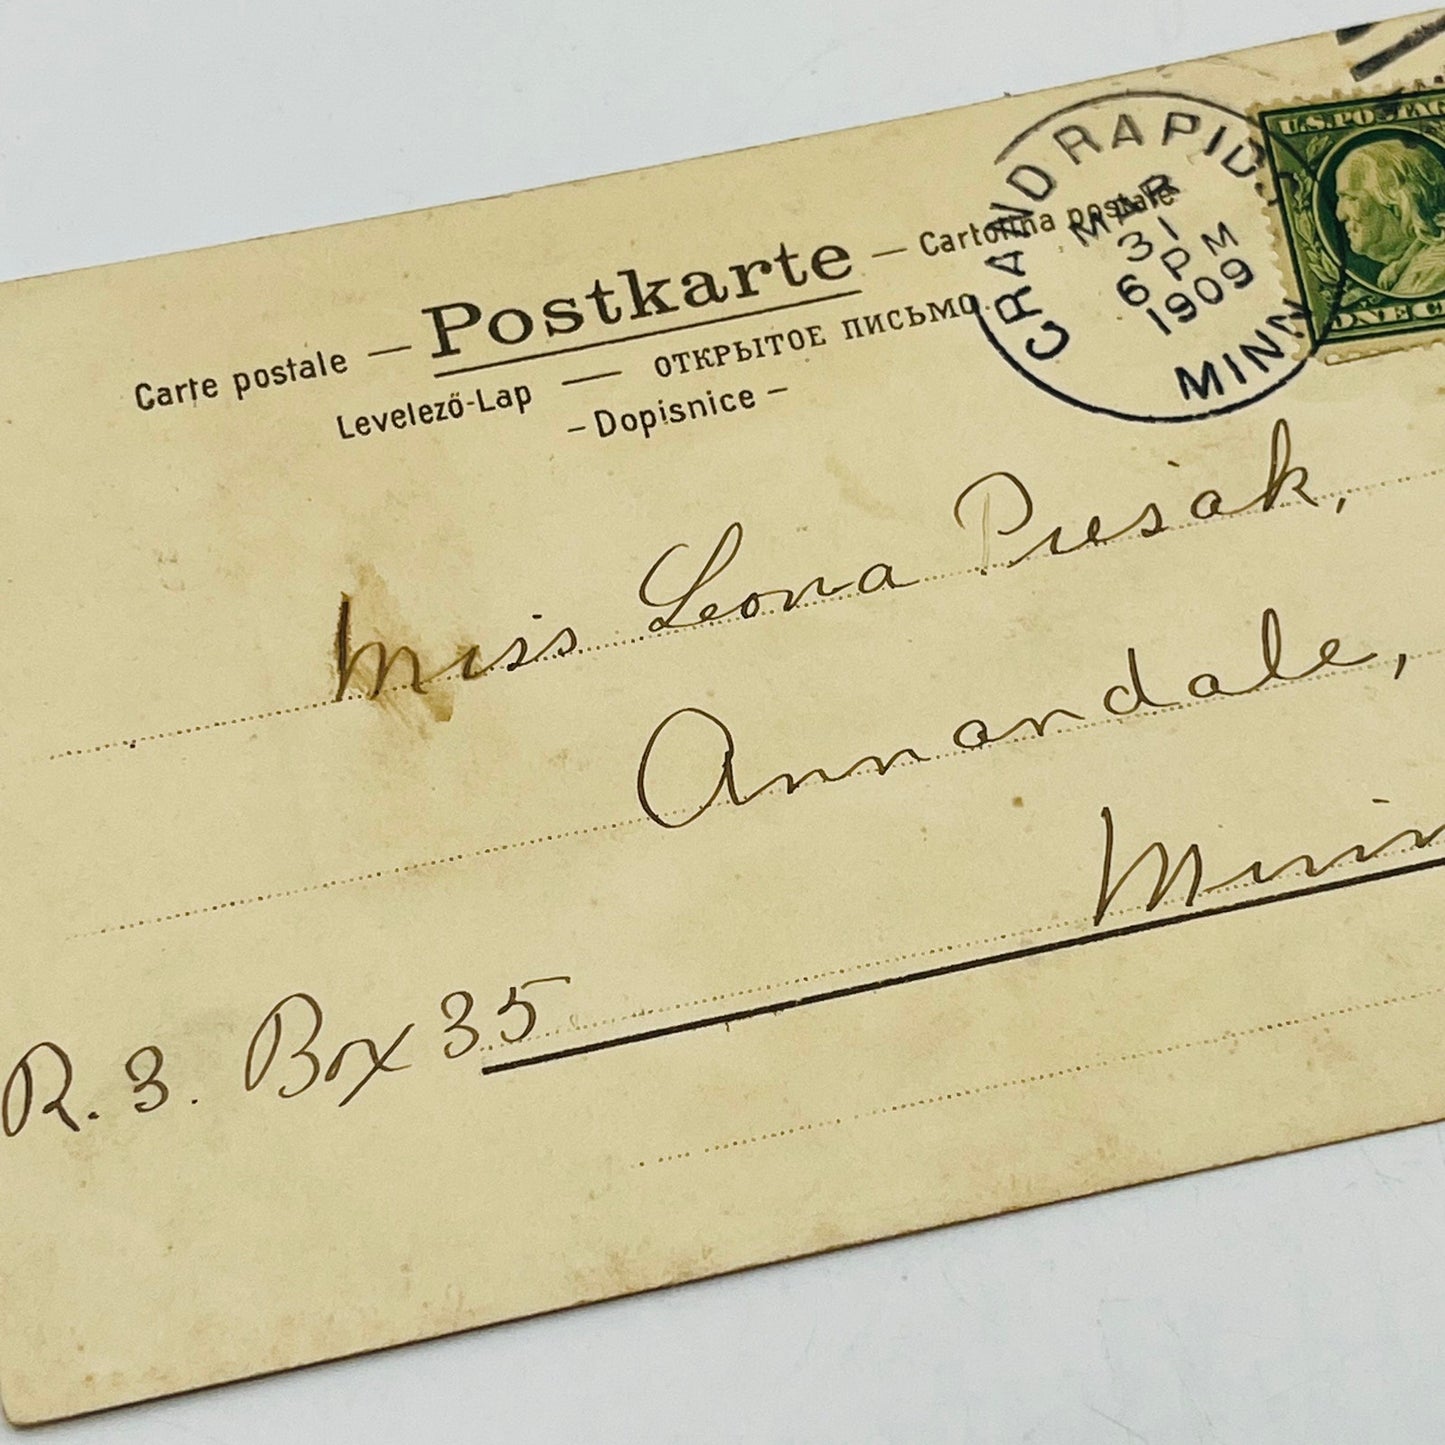 Postkarte
Carte postale — — Cartolina postale
Levelező-Lap — ОТКРЫТОЕ ПИСЬМО
– Dopisnice –
GRAND RAPIDS
MAR
31
6 PM
1909
MINN
U.S. POSTAG
ONE C
Miss Leona
Annandale,
Minn
R. 3. Box 35